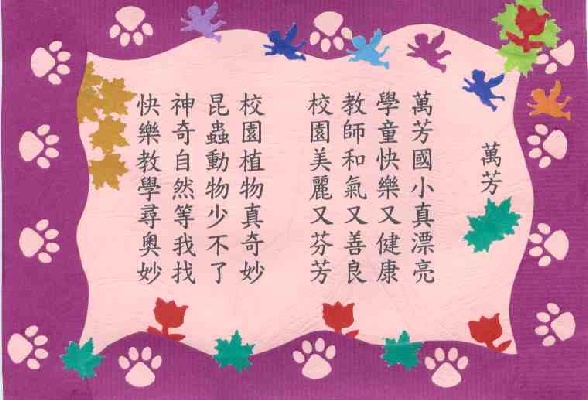 萬芳
萬芳國小真漂亮
學童快樂又健康
教師和氣又善良
校園美麗又芬芳
校園植物真奇妙
昆蟲動物少不了
神奇自然等我找
快樂教學尋奧妙